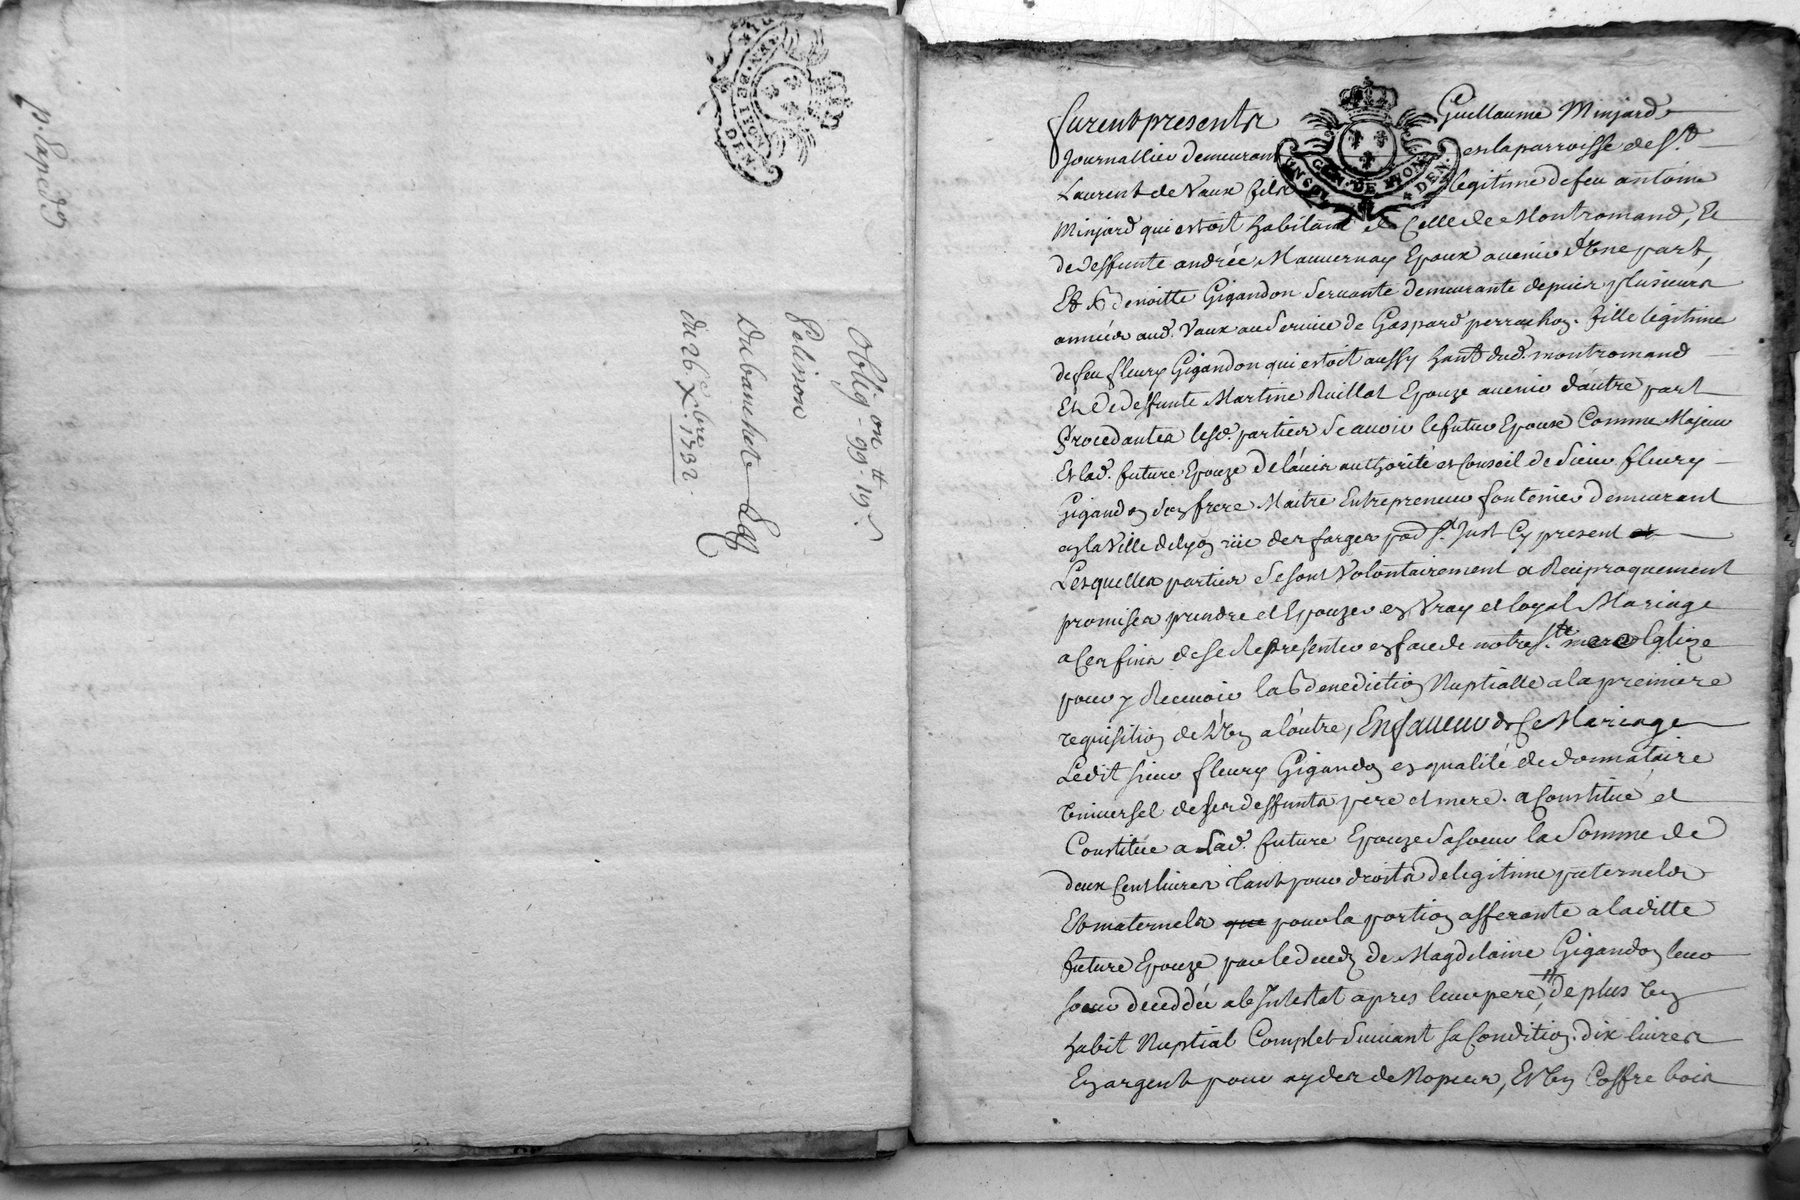 p. Lapered
GEN. DE LYON
DEN.
Oblig.on 99tt 19s
Polinon
Dubanchet
du 26 xbre 1732.
furent presents Guillaume Minjard
Journallier demeurant en la parroisse de St
Laurent de Vaux fils legitime de feu antoine
Minjard qui estoit habitant de Celle de Montromand, Et
de deffunte andrée Mauvernay Epoux avenir d'Une part,
Et Benoitte Gigandon Servante demeurante depuis plusieurs
années aud. Vaux au Service de Gaspard perrachon. fille légitime
de feu fleury Gigandon qui estoit aussy hant dud. montromand
Et De deffunte Martine Ruillat Epouze avenir d'autre part
Procedantes lesd. parties Scavoir le futur Epoux Comme Majeur
Et lad. future Epouze de l'avis authorité et Conseil de Sieur fleury
Gigandon Son frere Maitre Entrepreneur fontenier demeurant
en la Ville de lyon rüe des farges par St Just Cy present
Lesquelles parties Se sont Volontairement et Reciproquement
promises prendre et Epouzer en Vray et loyal Mariage
a Ces fins de se Representer en face de notre Ste mere Eglize
pour y Recevoir la Benediction Nuptialle a la premiere
requisition de L'Un a l'autre, En faveur de Ce Mariage
Ledit Sieur fleury Gigandon en qualité de donnataire
Universel de ses deffunts pere et mere. a Constitué et
Constitüe a Lad. future Epouze Sa soeur la Somme de
deux Cent livres tant pour droits de legitime paternels
Et maternels que pour la portion afferante a laditte
future Epouze par le deceds de Magdelaine Gigandon leur
soeur deceddée ab Intestat apres leur pere, de plus Un
habit Nuptial Complet Suivant sa Condition. dix livres
En argent pour ayder de Nopces, Et Un Coffre bois